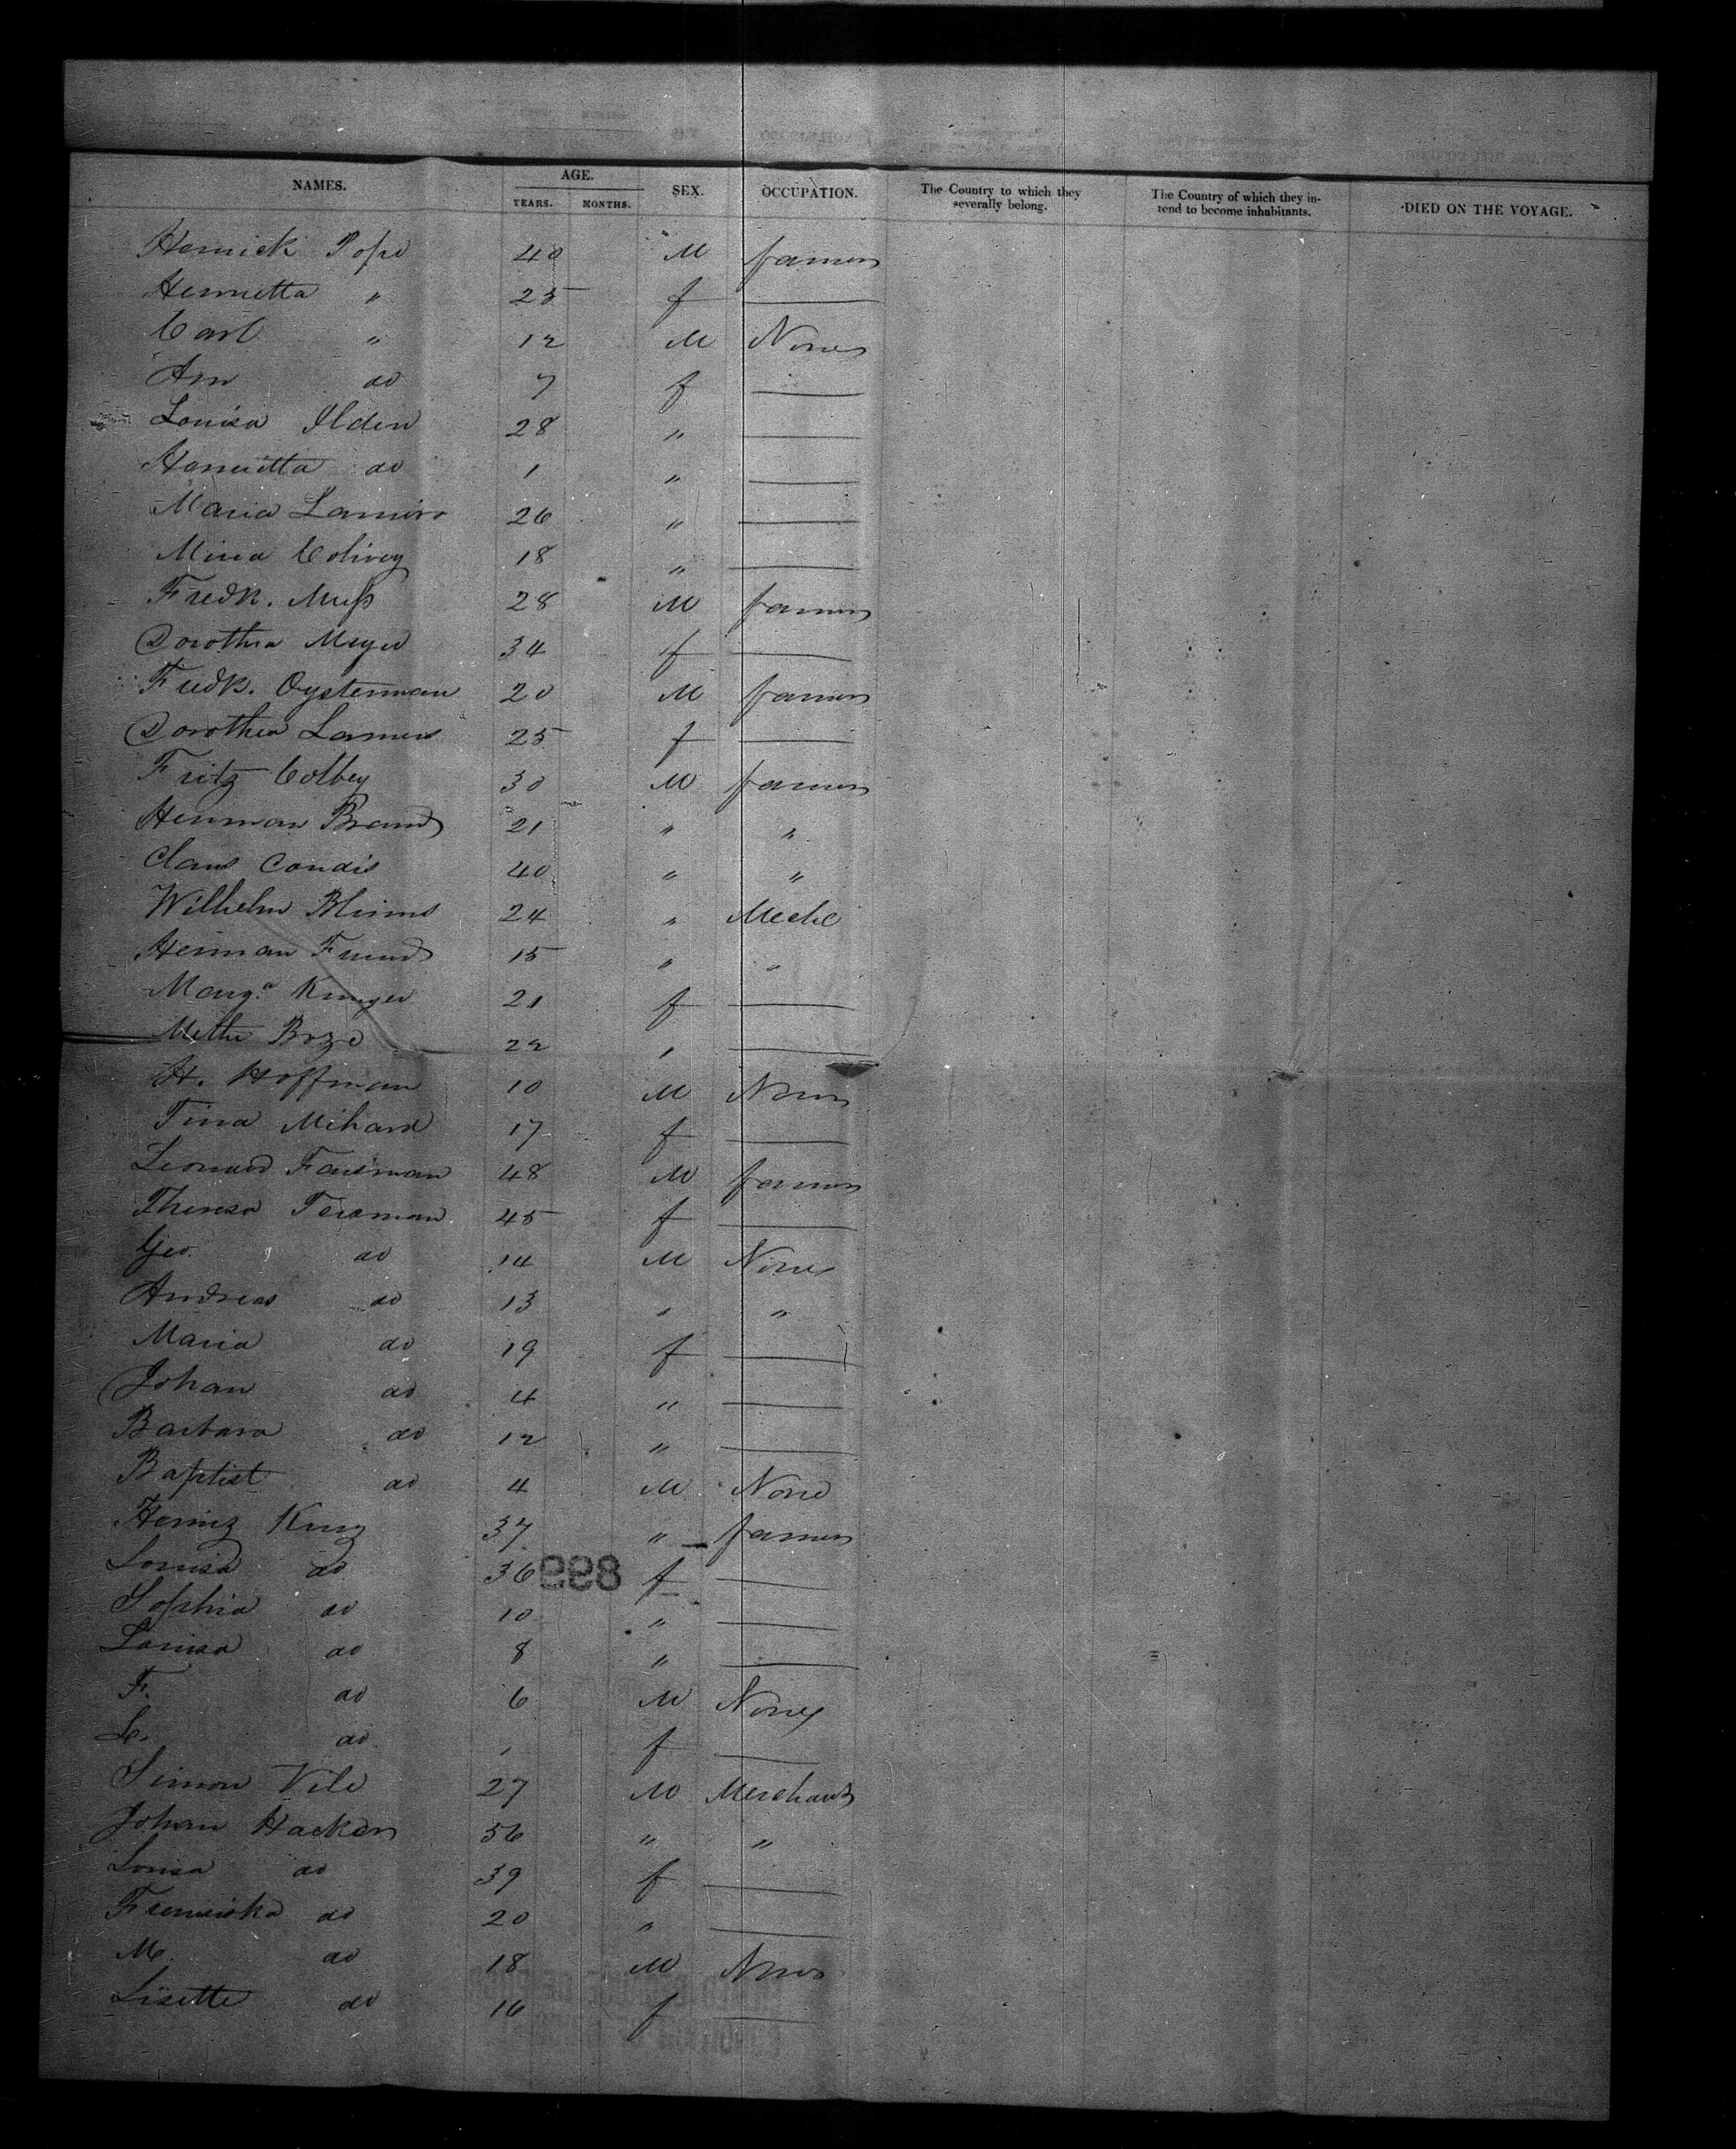 NAMES. AGE. YEARS. MONTHS. SEX. OCCUPATION. The Country to which they severally belong. The Country of which they intend to become inhabitants. DIED ON THE VOYAGE.
Henrick Pope 40 M farmer
Henrietta " 25 f
Carl " 12 M None
Ann do 7 f
Louisa Ilden 28 "
Henrietta do 1 "
Maria 26 "
Mina 18 "
Fredk. Muss 28 M farmer
Dorothea Meyer 34 f
Fredk. Oysterman 20 M farmer
Dorothea Lamers 25 f
Fritz Colbey 30 M farmer
Herman Brand 21 " "
Claus Condis 40 " "
Wilhelm 24 " Mechc
Herman Freund 15 " "
Marga. Kruger 21 f
Methe Boze 22 "
H. Hoffman 10 M None
Tina Mihard 17 f
Leonard 48 M farmer
Theresa 45 f
Geo. do 14 M None
Andreas do 13 " "
Maria do 19 f
Johan do 4 "
Barbara do 12 "
Baptist do 4 M None
37 " farmer
Louisa do 36 f
Sophia do 10 "
Louisa do 8 "
F. do 6 M None
do 1 f
Simon Vile 27 M Merchant
Johan Hacken 56 " "
Louisa do 39 f
do 20 "
M. do 18 M None
Lisette do 16 f